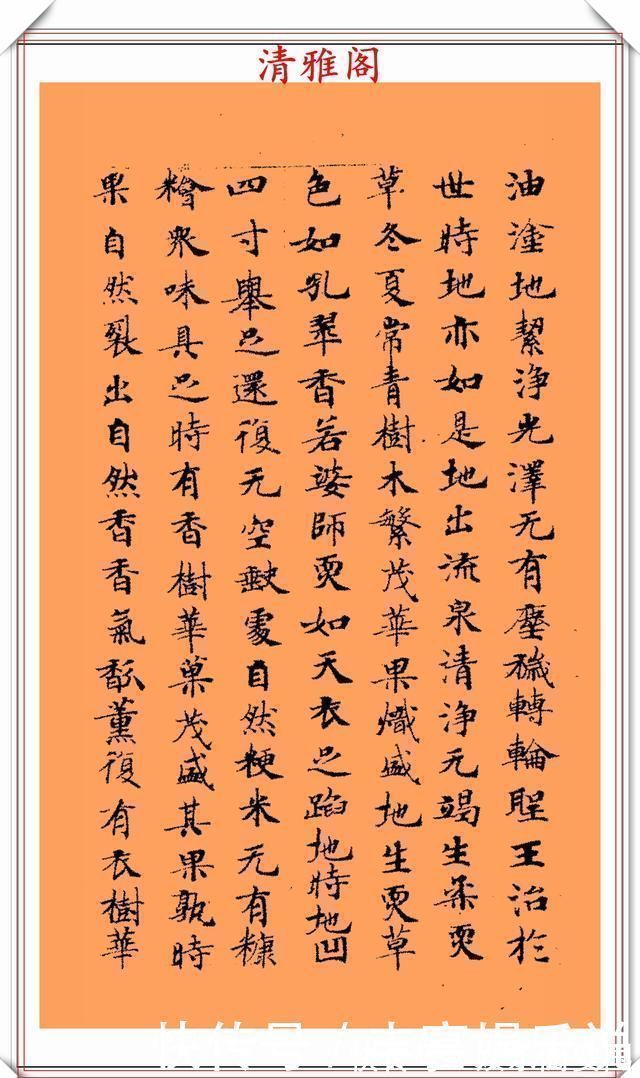 清雅阁
油塗地絜淨光澤无有塵穢轉輪聖王治於
世時地亦如是地出流泉清淨无竭生柔耎
草冬夏常青樹木繁茂華果熾盛地生耎草
色如孔翠香若婆師耎如天衣足蹈地時地凹
四寸舉足還復无空缺處自然粳米无有糠
糩衆味具足時有香樹華菓茂盛其果孰時
果自然裂出自然香香氣馚薰復有衣樹華